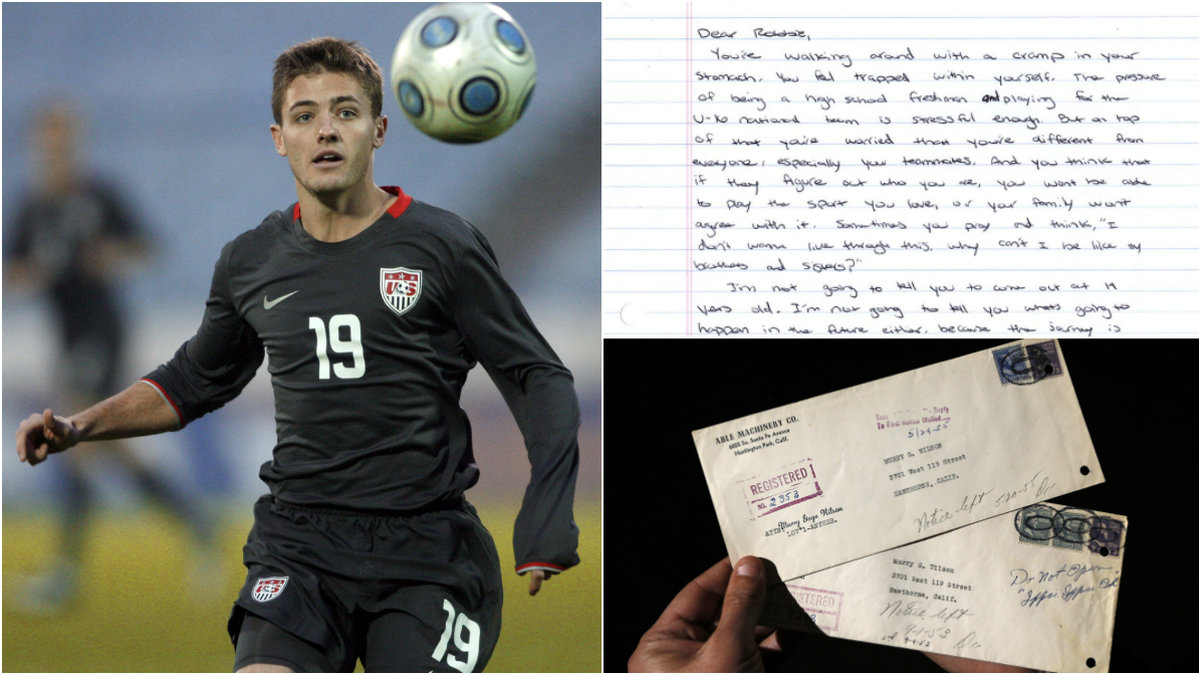 US
19
US
19
Dear Robbie,
You're walking around with a cramp in your
stomach. You feel trapped within yourself. The pressure
of being a high school freshman and playing for the
U-16 national team is stressful enough. But on top
of that you're worried that you're different from
everyone, especially your teammates. And you think that
if they figure out who you are, you won't be able
to play the sport you love, or your family won't
agree with it. Sometimes you pray and think, "I
don't wanna live through this. Why can't I be like my
brothers and sisters?"
I'm not going to tell you to come out at 14
years old. I'm not going to tell you what's going to
happen in the future either, because the journey is
ABLE MACHINERY CO.
Huntington Park, Calif.
Reply
To First Notice Mailed
5/24-55
MURRY G. WILSON
3701 West 119 Street
HAWTHORNE, CALIF.
REGISTERED
NO. 2353
Murry Gage Wilson
Notice left 5-20-55
Murry G. Wilson
3701 West 119 Street
Hawthorne, Calif.
REGISTERED
Do Not Open.
Notice left
9-1-53